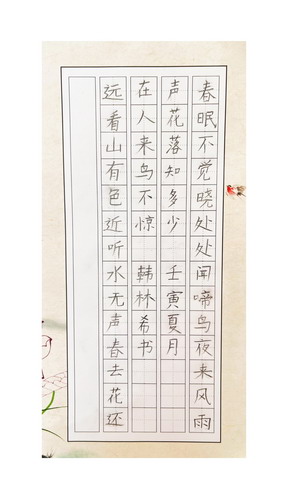 春眠不觉晓处处闻啼鸟夜来风雨
声花落知多少 壬寅夏月
在人来鸟不惊 韩林希书
远看山有色近听水无声春去花还